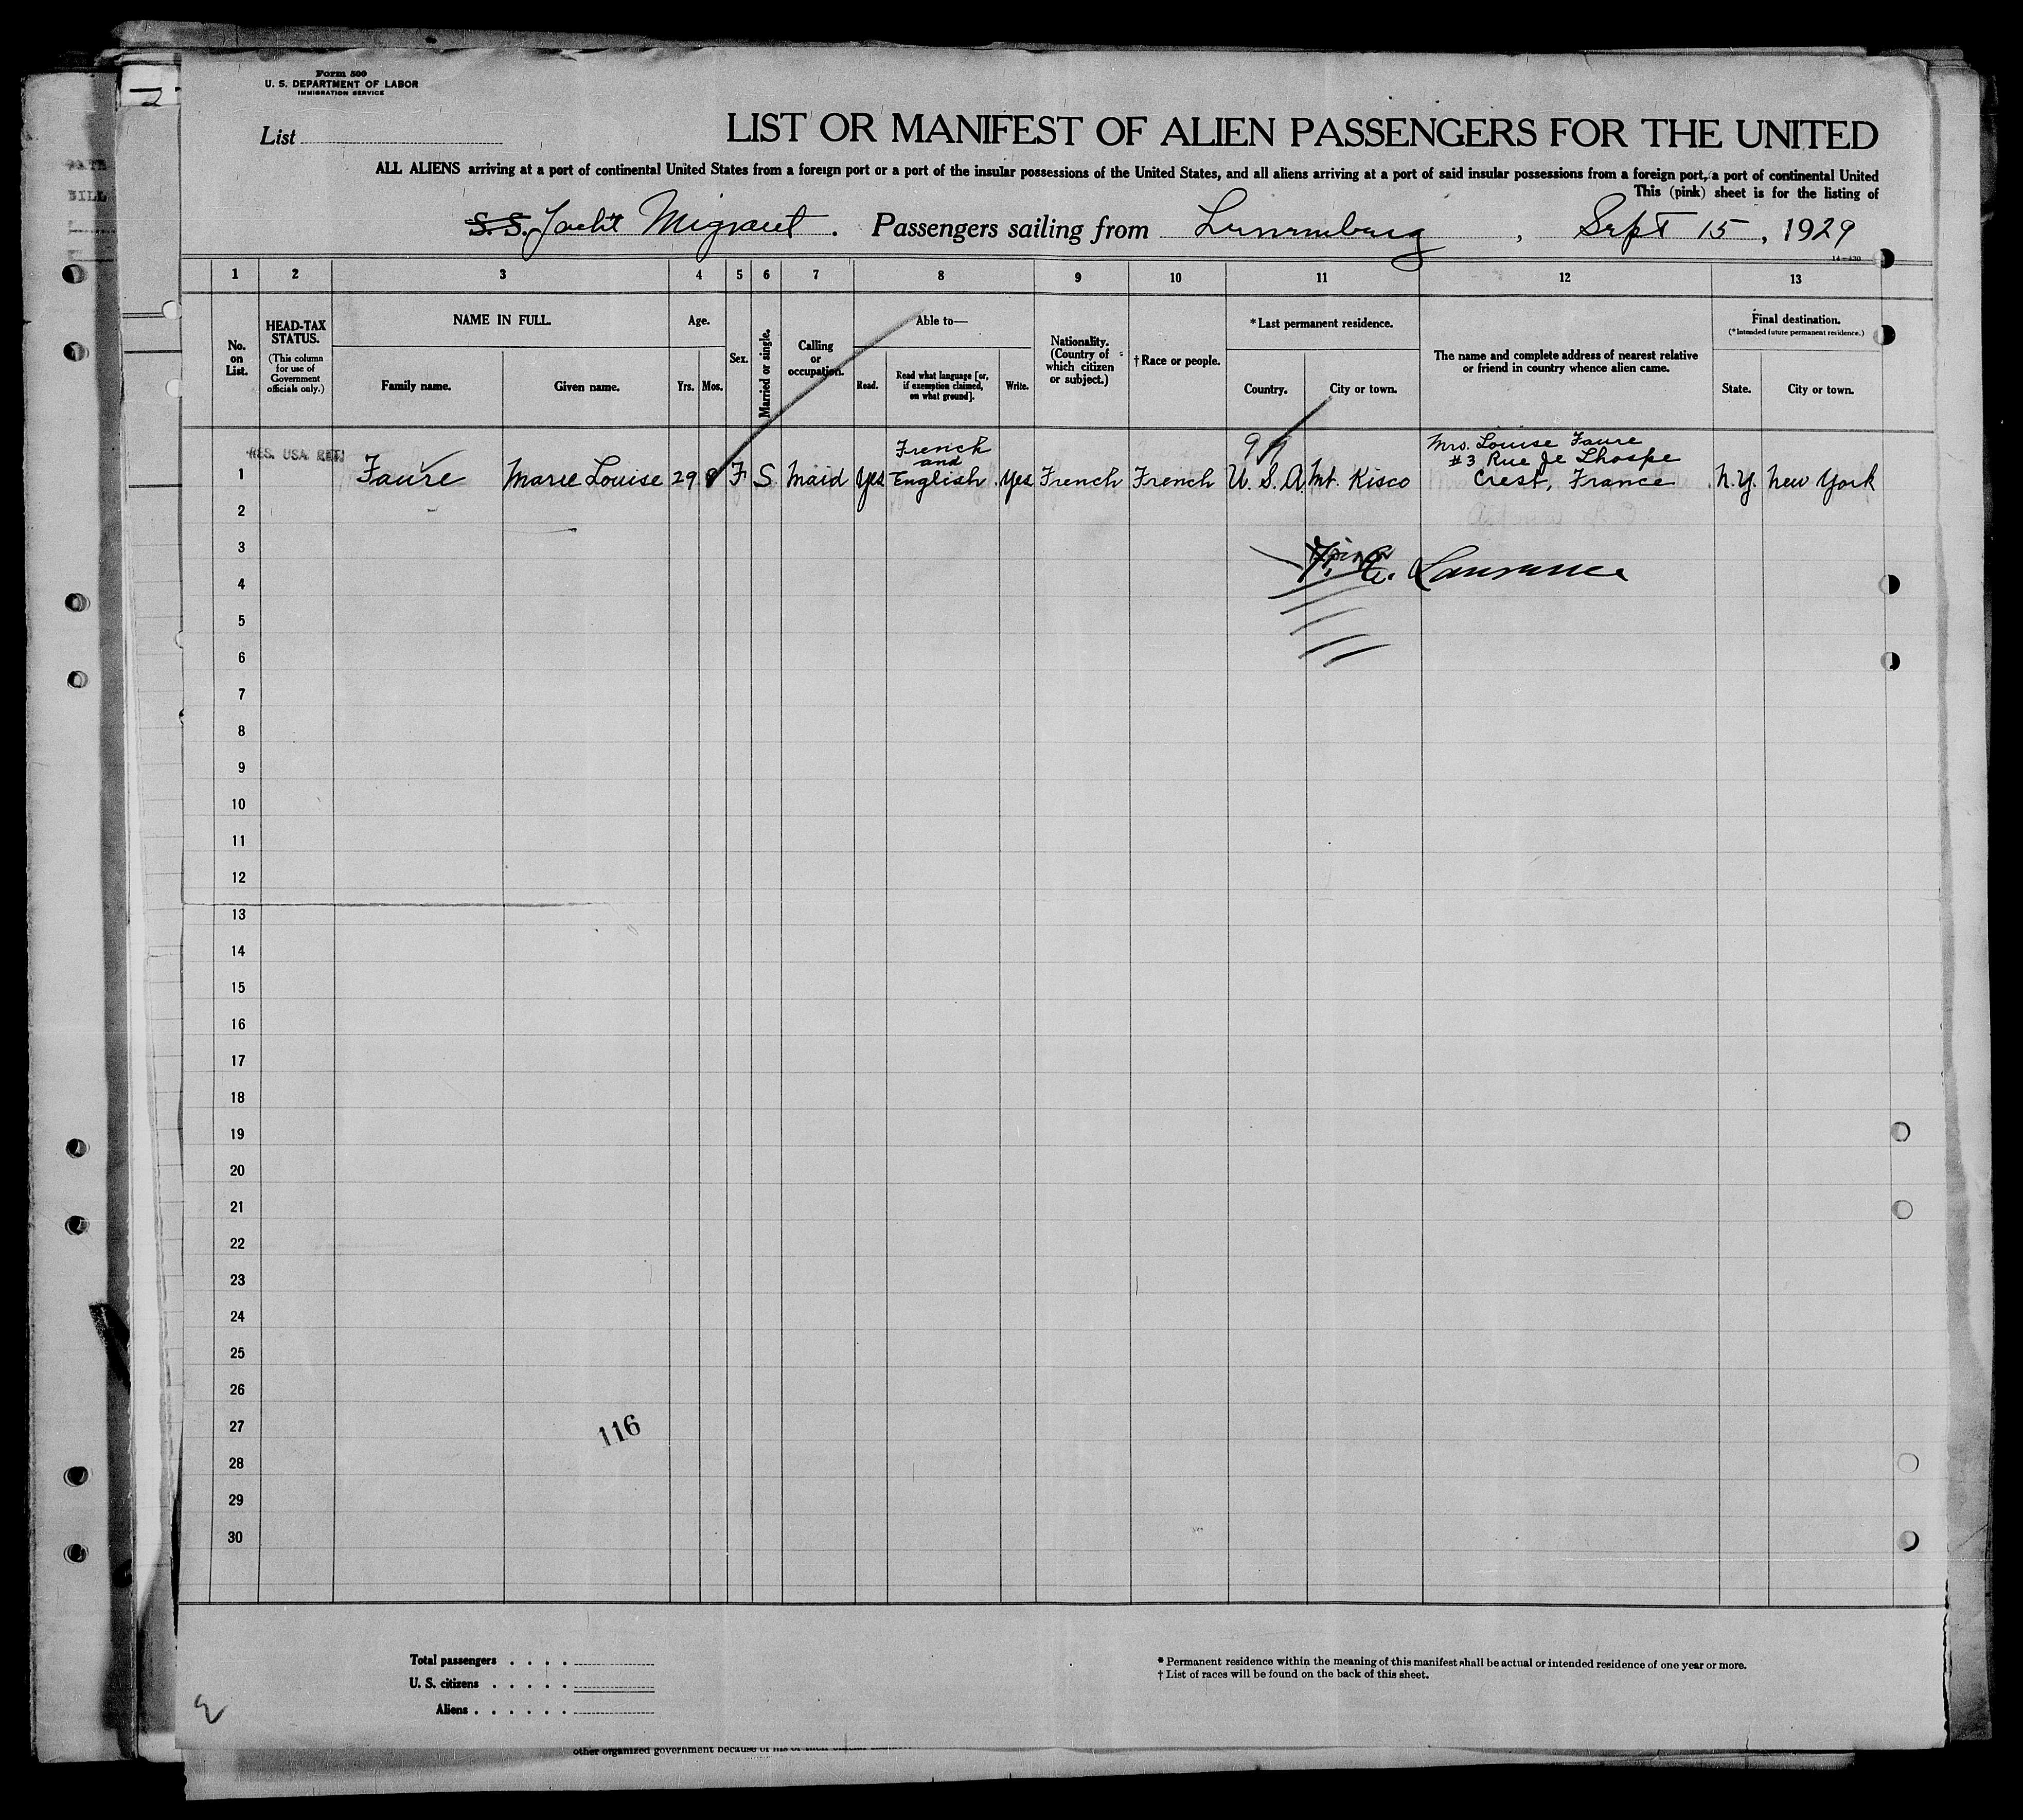 Form 500
U. S. DEPARTMENT OF LABOR
IMMIGRATION SERVICE
List
LIST OR MANIFEST OF ALIEN PASSENGERS FOR THE UNITED
ALL ALIENS arriving at a port of continental United States from a foreign port or a port of the insular possessions of the United States, and all aliens arriving at a port of said insular possessions from a foreign port, a port of continental United
This (pink) sheet is for the listing of
S. S. Yacht Migrant . Passengers sailing from Lunenburg , Sept 15 , 1929
1 2 3 4 5 6 7 8 9 10 11 12 13
No. on List.
HEAD-TAX STATUS.
(This column for use of Government officials only.)
NAME IN FULL.
Family name. Given name.
Age.
Yrs. Mos.
Sex.
Married or single.
Calling or occupation.
Able to—
Read. Read what language [or, if exemption claimed, on what ground]. Write.
Nationality. (Country of which citizen or subject.)
†Race or people.
*Last permanent residence.
Country. City or town.
The name and complete address of nearest relative or friend in country whence alien came.
Final destination.
(*Intended future permanent residence.)
State. City or town.
RES. USA RET.
1 Faure Marie Louise 29 F S Maid Yes French and English Yes French French U. S. A. Mt. Kisco Mrs. Louise Faure #3 Rue de Lhospe Crest, France N.Y. New York
2
3
4
5
6
7
8
9
10
11
12
13
14
15
16
17
18
19
20
21
22
23
24
25
26
27
116
28
29
30
Total passengers
U. S. citizens
Aliens
* Permanent residence within the meaning of this manifest shall be actual or intended residence of one year or more.
† List of races will be found on the back of this sheet.
other organized government because of his or their